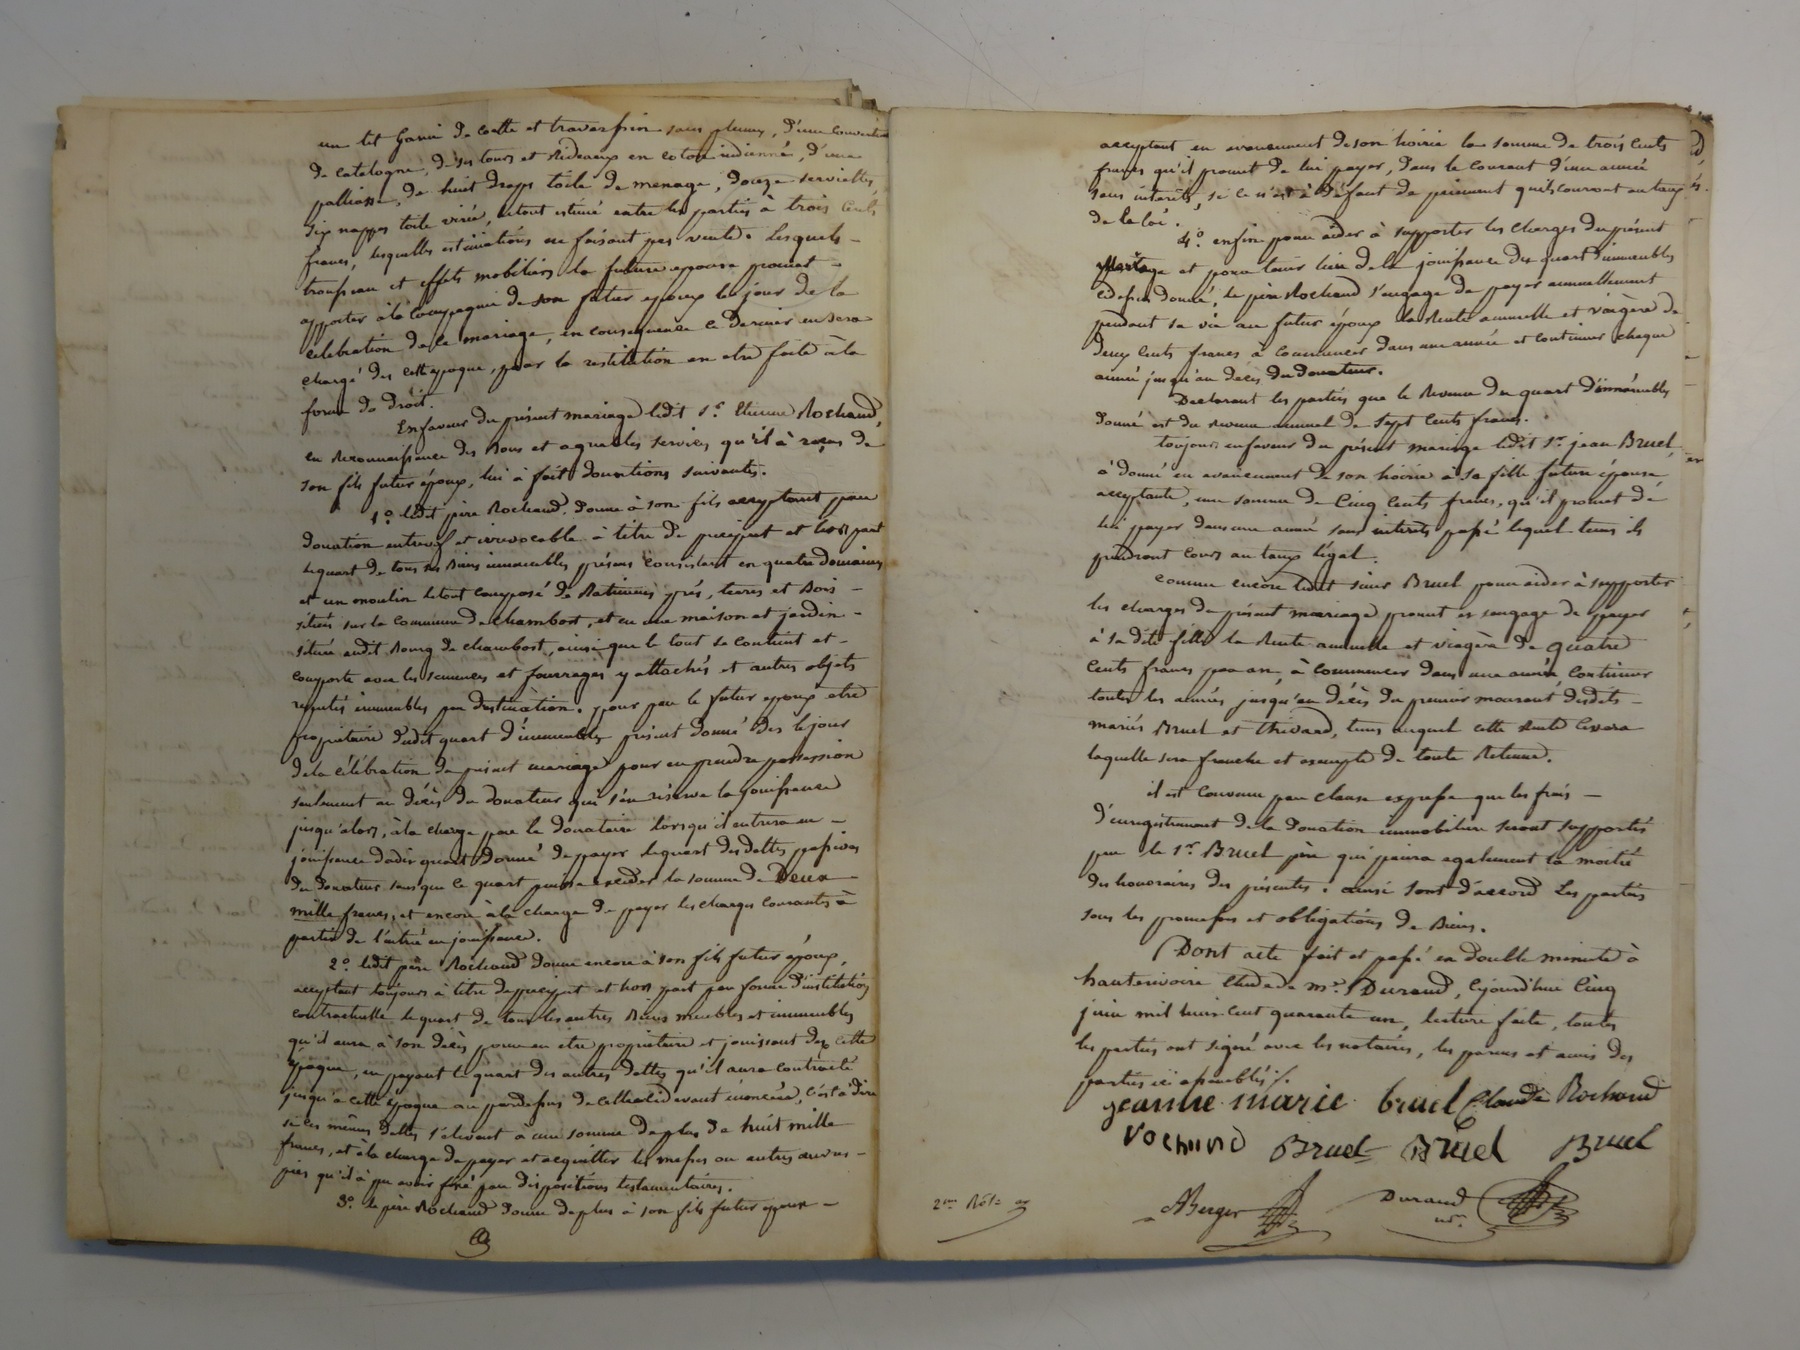 un lit Garni de coette et traversin sans plumes, d'une couverture
de catalogne, de ses tours et Rideaux en coton indienné, d'une
palliasse, de huit draps toile de menage, douze serviettes,
six nappes toile virée, letout estimé entre les parties à trois Cents
francs, lesquelles estimations ne faisant pas vente. Lesquels -
trousseau et effets mobiliers la future epouse promet -
apporter à la Compagnie de son futur epoux le jour de la
celebration de ce mariage, en consequence ce Dernier en sera
chargé des cette epoque, pour la restitution en etre faite à la
forme de Droit.
En faveur du présent mariage ledit Sr. Etienne Rochand,
en Reconnaissance des Bons et agreables services qu'il à reçus de
son fils futur époux, lui à fait donations suivantes.
1o. ledit père Rochand Donne à son fils acceptant par
donation entrevif et irrevocable à titre de preciput et hors part
lequart de tous ses Biens immeubles présens Consistant en quatre domaines
et un moulin letout Composé de Batimens prés, terres et Bois -
situés sur la Commune de Chambost, et en une maison et jardin -
située audit Bourg de Chambost, ainsi que le tout se contient et -
comporte avec les semences et fourrages y attachés et autres objets
reputés immeubles par destination. pour par le futur epoux etre
propriétaire dudit quart d'immeubles présent Donné Dès lejour
de la célébration du présent mariage pour en prendre possession
seulement au décès du donateur qui s'en réserve la jouissance
jusqu'alors, à la charge par le donataire lorsqu'il entrera en -
jouissance dudit quart donné de payer lequart des dettes passives
du Donateur sans que ce quart puisse exceder la somme de Deux -
mille francs, et encore à la charge de payer les charges Courantes à
partir de l'entrée en jouissance.
2o. ledit père Rochand donne encore à son fils futur époux,
acceptant toujours à titre de preciput et hors part par forme d'institution
Contractuelle lequart de tous les autres Biens meubles et immeubles
qu'il aura à son Décès pour en etre propriétaire et jouissant dez cette
époque, en payant le quart des autres dettes qu'il aura contracté
jusqu'à cette époque au pardessus de celles cidevant énoncées, c'est à dire
si ces mêmes dettes s'elevent à une somme de plus de huit mille
francs, et à la charge de payer et acquitter les messes ou autres œuvres -
pies qu'il à pu avoir fixé par dispositions testamentaires.
3o. le père Rochand Donne de plus à son fils futur epoux -
acceptant en avancement de son hoirie la somme de trois Cents
francs qu'il promet de lui payer, dans le Courant d'une année
sans interets, si ce n'est à défaut de paiement qu'ils courront au taux
de la loi.
4o. enfin pour aider à supporter les charges du présent
Mariage et pour tenir lieu de la jouissance du quart d'immeubles
cidessus donné, le père Rochand s'engage de payer annuellement
pendant sa vie au futur époux la Rente annuelle et viagère de
deux Cents francs à Commencer dans une année et continuer chaque
année jusqu'au deces du donateur.
Declarent les parties que le Revenu du quart d'immeubles
donné est du Revenu annuel de Sept Cents francs.
toujours enfaveur du présent mariage ledit Sr. jean Bruel,
à donné en avancement de son hoirie à sa fille future épouse
acceptante, une somme de Cinq Cents francs, qu'il promet de
lui payer dans une année sans interets passé lequel tems ils
prendront Cours au taux légal.
comme encore ledit sieur Bruel pour aider à supporter
les charges du présent mariage promet et sengage de payer
à sa dite fille la Rente annuelle et viagère de quatre
Cents francs par an, à Commencer dans une année, Continuer
toutes les années jusqu'au décès du premier mourant desdits -
mariés Bruel et thivard, tems auquel cette Rente Cessera
laquelle sera franche et exempte de toute Retenue.
il est Convenu par clause expresse que les frais -
d'enregistrement de la donation immobiliere seront supportés
par le Sr. Bruel père qui paiera egalement la moitié
des honoraires des présentes. ainsi sont d'accord Les parties
sous les promesses et obligations de Biens.
Dont acte fait et passé en double minute à
hauterivoire Etude de me. Durand, cejourd'hui Cinq
juin mil huit Cent quarante un, lecture faite, toutes
les parties ont signé avec les notaires, les parens et amis des
parties ici assemblés /.
jeanne marie bruel Claude Rochand
rochand Bruel Bruel Bruel
2me Rôle
ABerger Durand
nre.